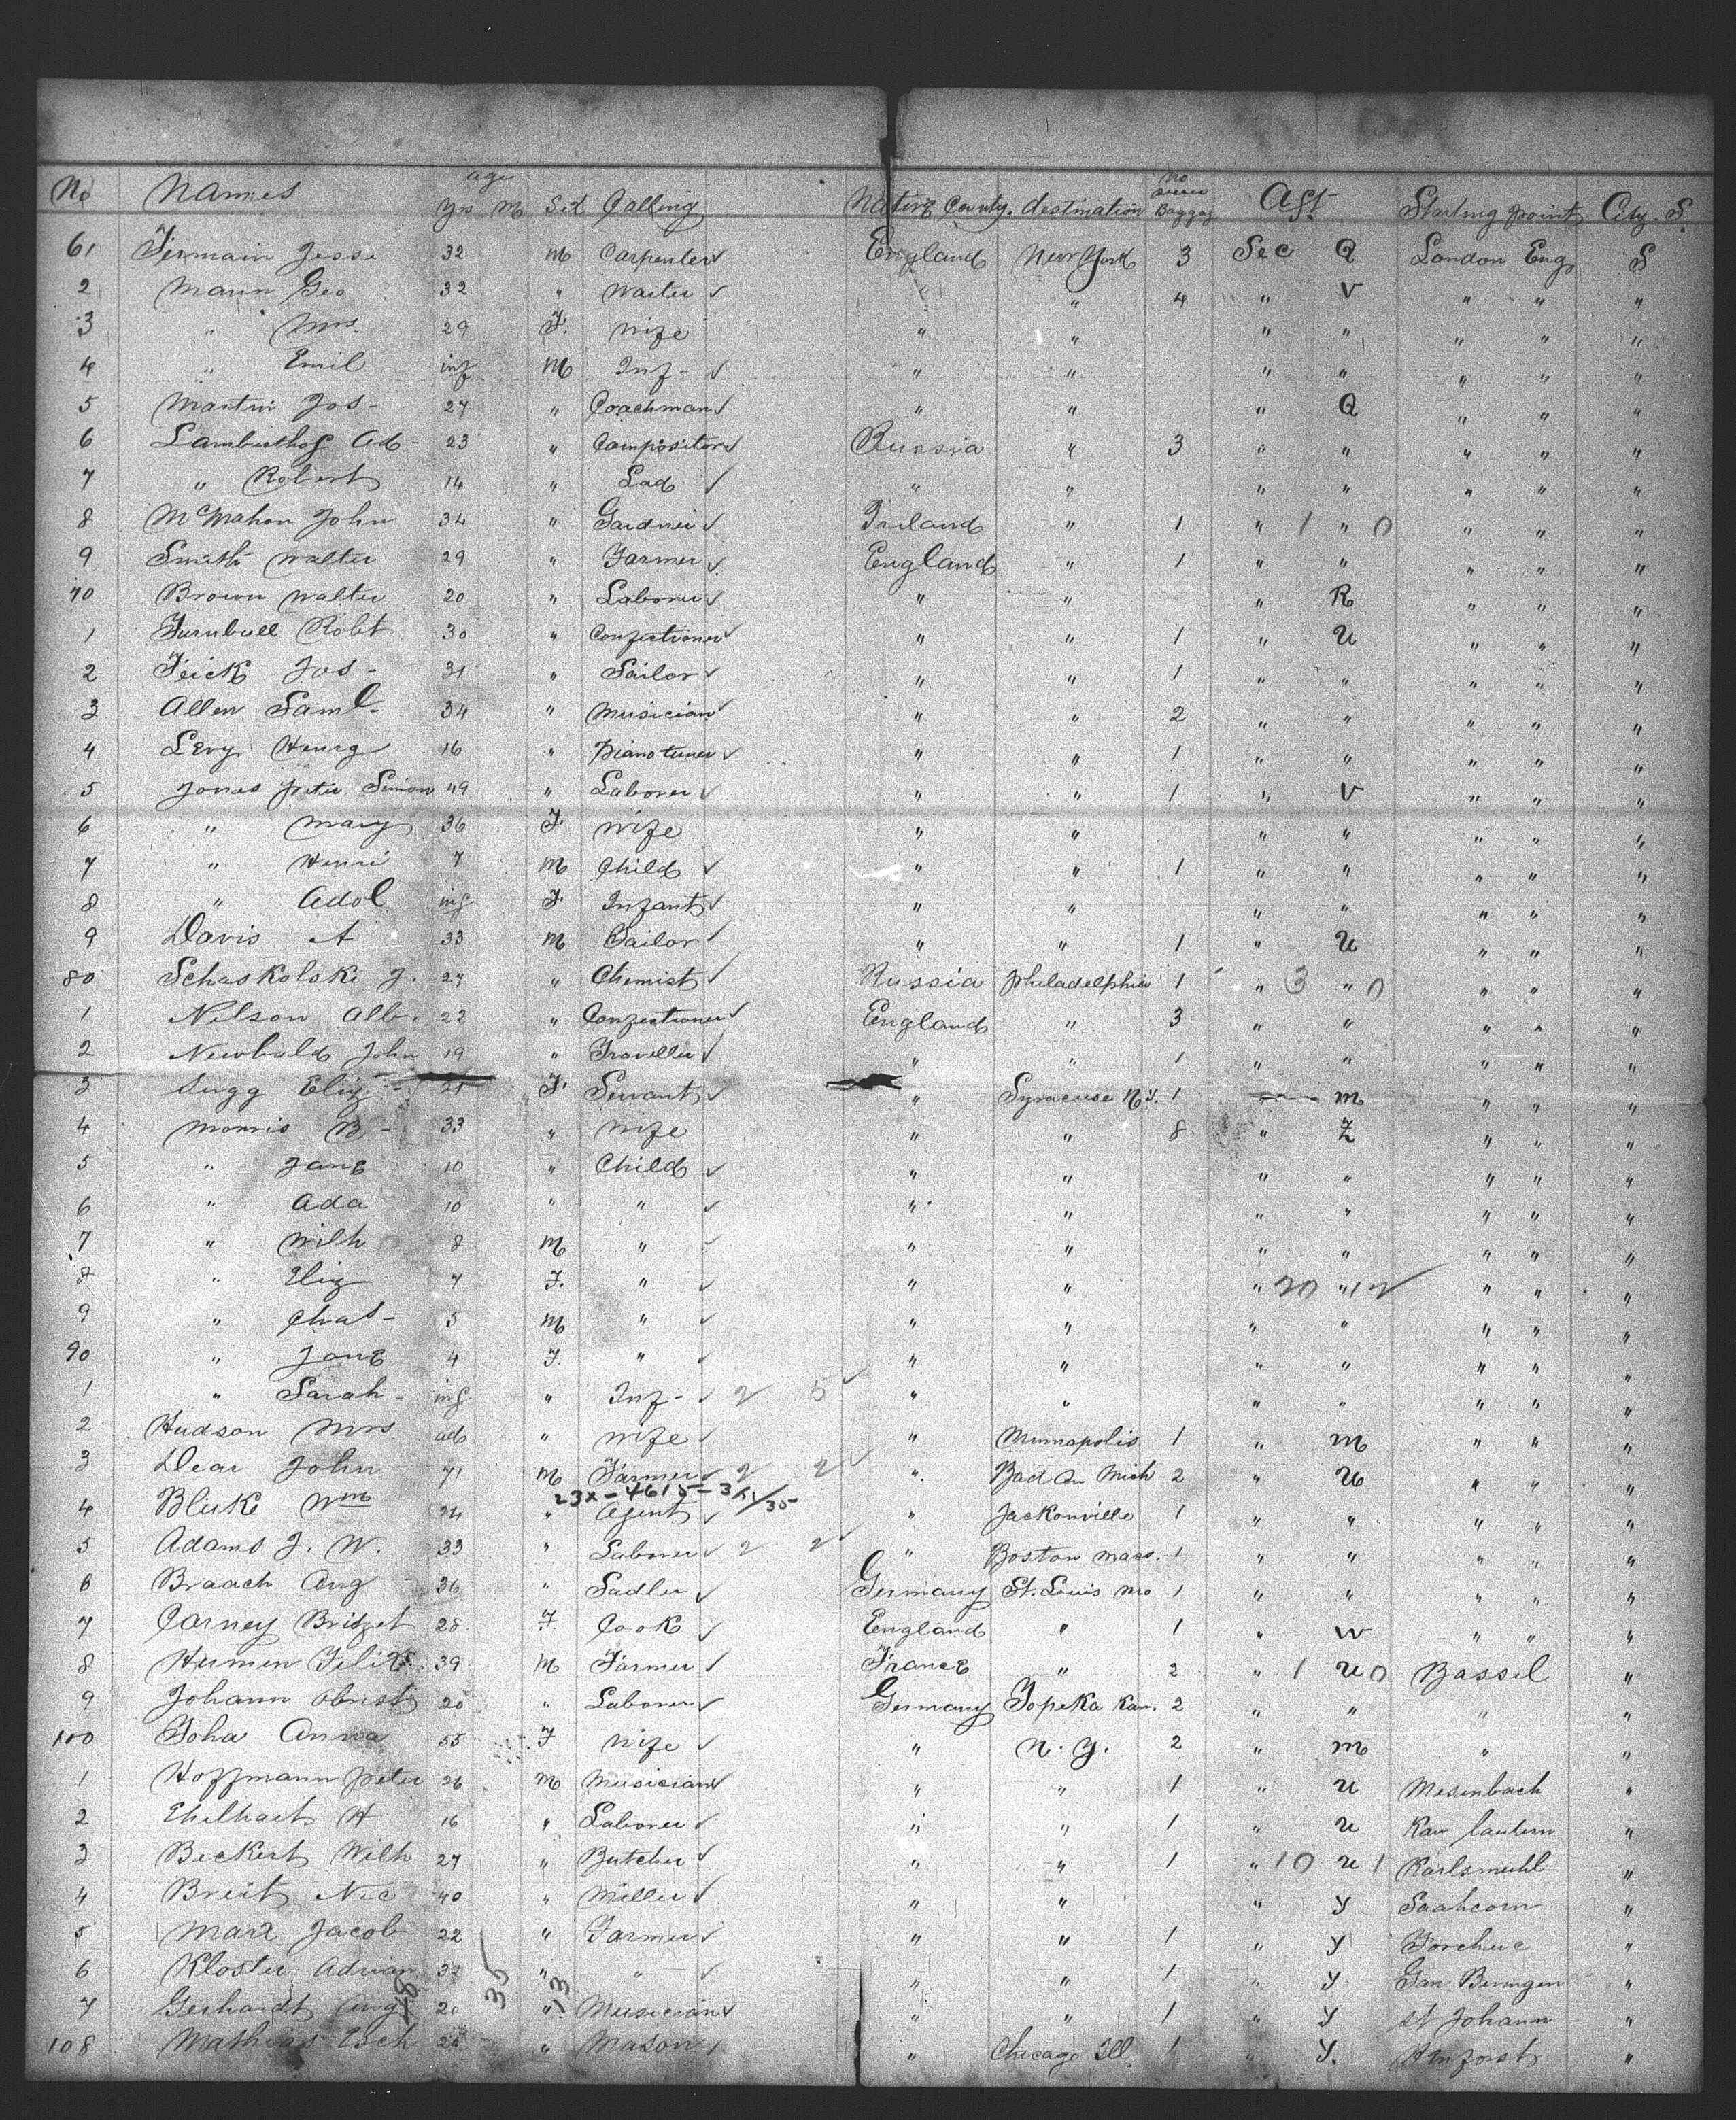 No Names age Yrs M Sex Calling Native County. destination No pieces Baggag Aft Starting point City. S.
61 Jermain Jesse 32 M Carpenter ✓ England New York 3 Sec Q London Eng S
2 Mann Geo 32 " Waiter ✓ " " 4 " V " " "
3 " Mrs. 29 F. Wife " " " " " " "
4 " Emil inf M Inf - ✓ " " " " " " "
5 Martin Jos - 27 " Coachman ✓ " " " Q " " "
6 Ad - 23 " Compositor ✓ Russia " 3 " " " " "
7 " Robert 14 " Lad ✓ " " " " " " "
8 McMahon John 34 " Gardner ✓ Ireland " 1 " 1 " 0 " " "
9 Smith Walter 29 " Farmer ✓ England " 1 " " " " "
70 Brown Walter 20 " Laborer ✓ " " " R " " "
1 Turnbull Robt 30 " Confectioner ✓ " " 1 " U " " "
2 Jos - 31 " Sailor ✓ " " 1 " " " " "
3 Allen Saml - 34 " Musician ✓ " " 2 " " " " "
4 Levy Henry 16 " Piano tuner ✓ " " 1 " " " " "
5 Jonas Peter Simon 49 " Laborer ✓ " " 1 " V " " "
6 " Mary 36 F Wife " " " " " " "
7 " Henri 7 M Child ✓ " " 1 " " " " "
8 " Adol inf F Infant ✓ " " " " " " "
9 Davis A 33 M Sailor ✓ " " 1 " U " " "
80 Schaskolski J. 27 " Chemist ✓ Russia Philadelphia 1 " 3 " 0 " " "
1 Nelson Alb. 22 " Confectioner ✓ England " 3 " " " " "
2 Newbuld John 19 " Traveller ✓ " " 1 " " " " "
3 Sugg Eliz - 21 F Servant ✓ " Syracuse N.Y. 1 M " " "
4 Morris B - 33 " Wife " " 8 " Z " " "
5 " Jane 10 " Child ✓ " " " " " " "
6 " Ada 10 " " ✓ " " " " " " "
7 " Wilh 8 M " ✓ " " " " " " "
8 " Eliz 7 F. " ✓ " " " 20 " 12 ✓ " " "
9 " Chas - 5 M " ✓ " " " " " " "
90 " Jane 4 F. " ✓ " " " " " " "
1 " Sarah - inf " Inf - ✓ 2 5 ✓ " " " " " " "
2 Hudson Mrs ad " Wife ✓ " Minnapolis 1 " M " " "
3 Dear John 71 M Farmer ✓ 2 2 ✓ " Bad Mich 2 " U " " "
23x - 4615 - 3/
4 Wm 24 " Agent ✓ " Jackonville 1 " " " " "
5 Adams J. W. 33 " Laborer ✓ 2 2 ✓ " Boston Mass. 1 " " " " "
6 Braach Aug - 36 " Sadler ✓ Germany St. Louis Mo 1 " " " " "
7 Carney Bridget 28 F. Cook ✓ England " 1 " W " " "
8 Felix 39 M Farmer ✓ France " 2 " 1 U 0 Bassel "
9 Johann Obrist 20 " Laborer ✓ Germany Topeka Kan. 2 " " " "
100 Joha Anna 55 F Wife ✓ " N. Y. 2 " M " "
1 Hoffmann Peter 26 M Musician ✓ " " 1 " U Mesenbach "
2 H 16 " Laborer ✓ " " 1 " U "
3 Beckert Wilh 27 " Butcher ✓ " " 1 " 10 U 1 Karlsmuhl "
4 Breit Nic 40 " Miller ✓ " " " Y "
5 Marx Jacob 22 " Farmer ✓ " " 1 " Y "
6 Kloster Adrian 32 " " ✓ " " 1 " Y "
7 Gerhardt Aug 20 " Musician ✓ " " 1 " Y St Johann "
48 35 13
108 Mathias Esch " Mason ✓ " Chicago Ill. 1 " Y. "